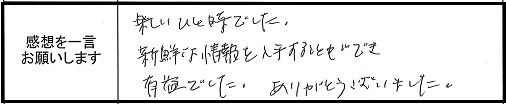 感想を一言
お願いします
楽しいひと時でした。
新鮮な情報を入手することができ
有益でした。ありがとうございました。